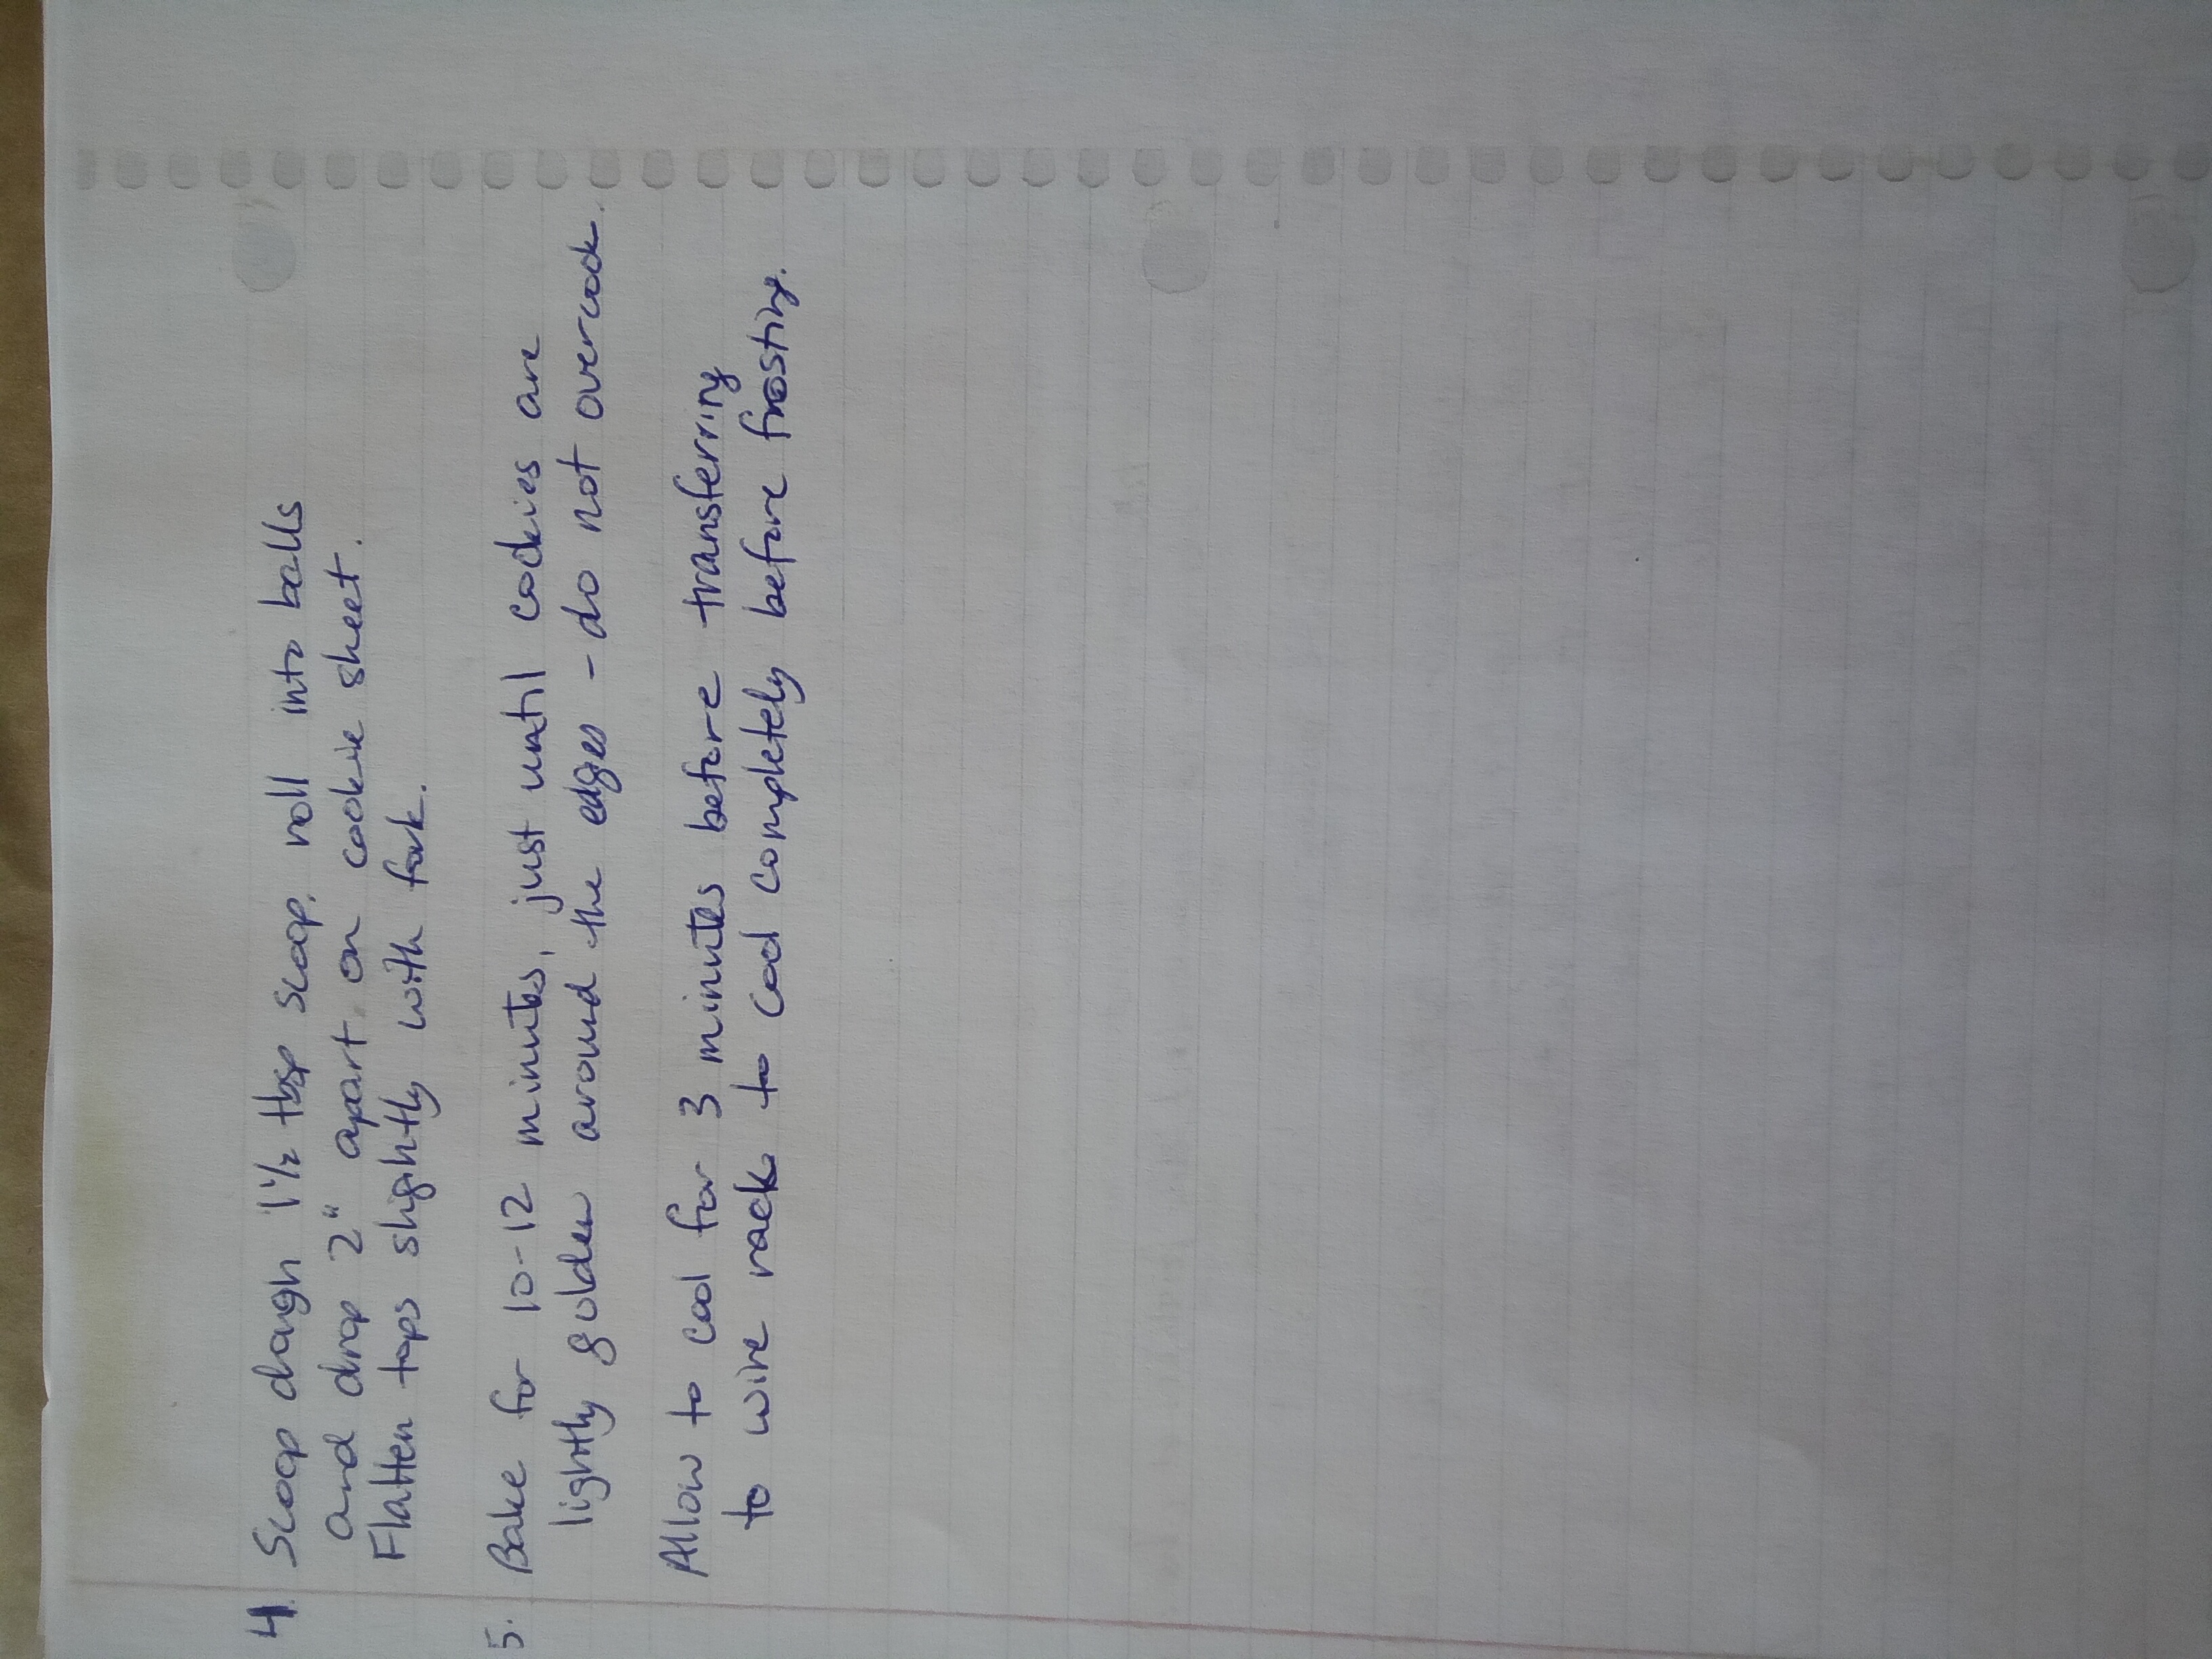 4. Scoop dough 1½ tbsp scoop, roll into balls
and drop 2" apart on cookie sheet.
Flatten tops slightly with fork.
5. Bake for 10-12 minutes, just until cookies are
lightly golden around the edges - do not overcook.
Allow to cool for 3 minutes before transferring
to wire rack to cool completely before frosting.